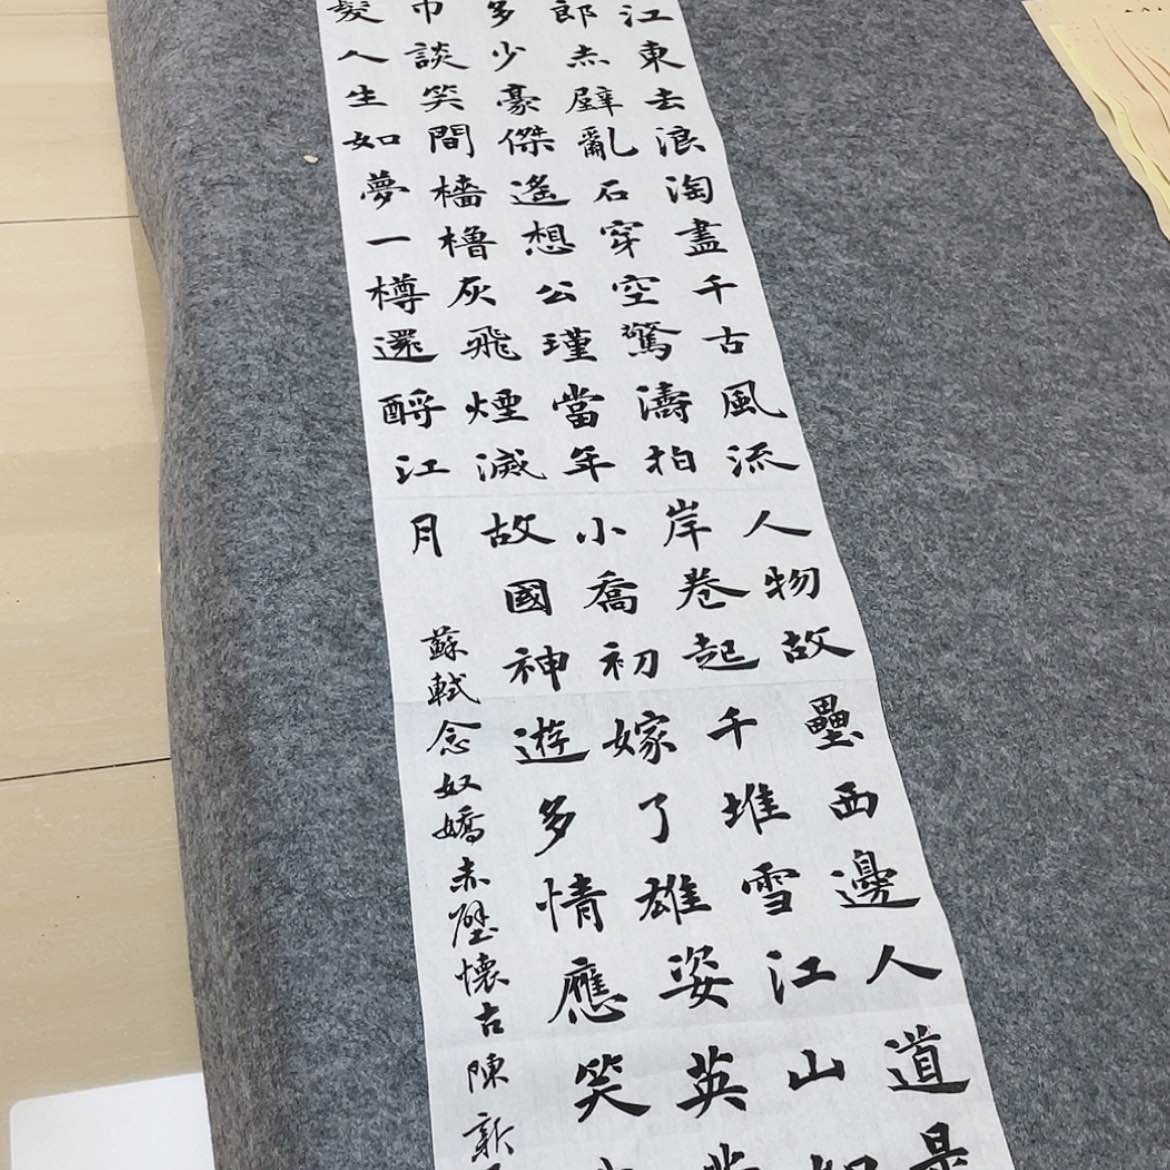 江東去浪淘盡千古風流人物故壘西邊人道是
郎赤壁亂石穿空驚濤拍岸卷起千堆雪江山如
多少豪傑遙想公瑾當年小喬初嫁了雄姿英
巾談笑間檣櫓灰飛煙滅故國神遊多情應笑
髮人生如夢一樽還酹江月
蘇軾念奴嬌赤壁懷古陳新